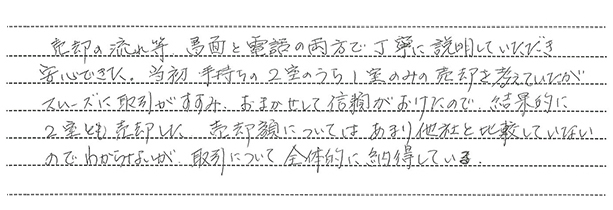 売却の流れ等、書面と電話の両方で丁寧に説明していただき
安心できた。当初手持ちの2室のうち1室のみの売却を考えていたが
スムーズに取引がすすみ、おまかせして信頼がおけたので、結果的に
2室とも売却した。売却額についてはあまり他社と比較していない
のでわからないが、取引について全体的に納得している。